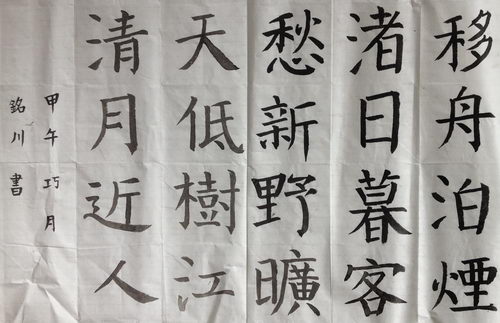 移舟泊煙
渚日暮客
愁新野曠
天低樹江
清月近人
甲午巧月
銘川書